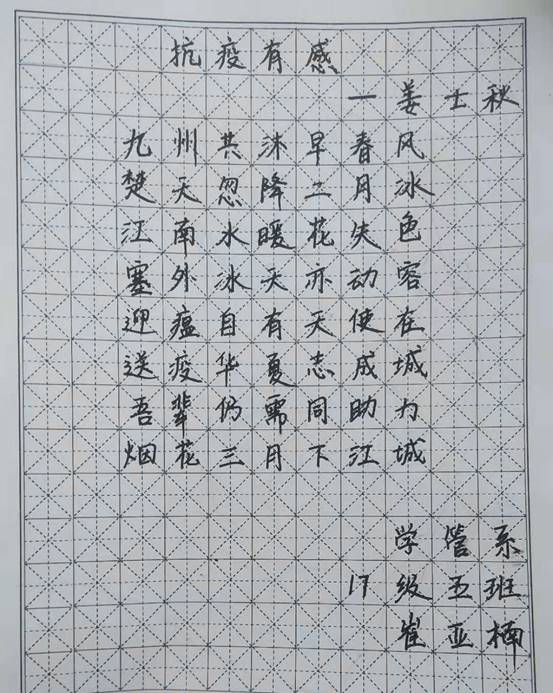 抗疫有感
一姜士秋
九州共沐早春风
楚天忽降二月冰
江南水暖花失色
塞外冰天亦动容
迎瘟自有天使在
送疫华夏志成城
吾辈仍需同助力
烟花三月下江城
学管系
17级五班
崔亚楠